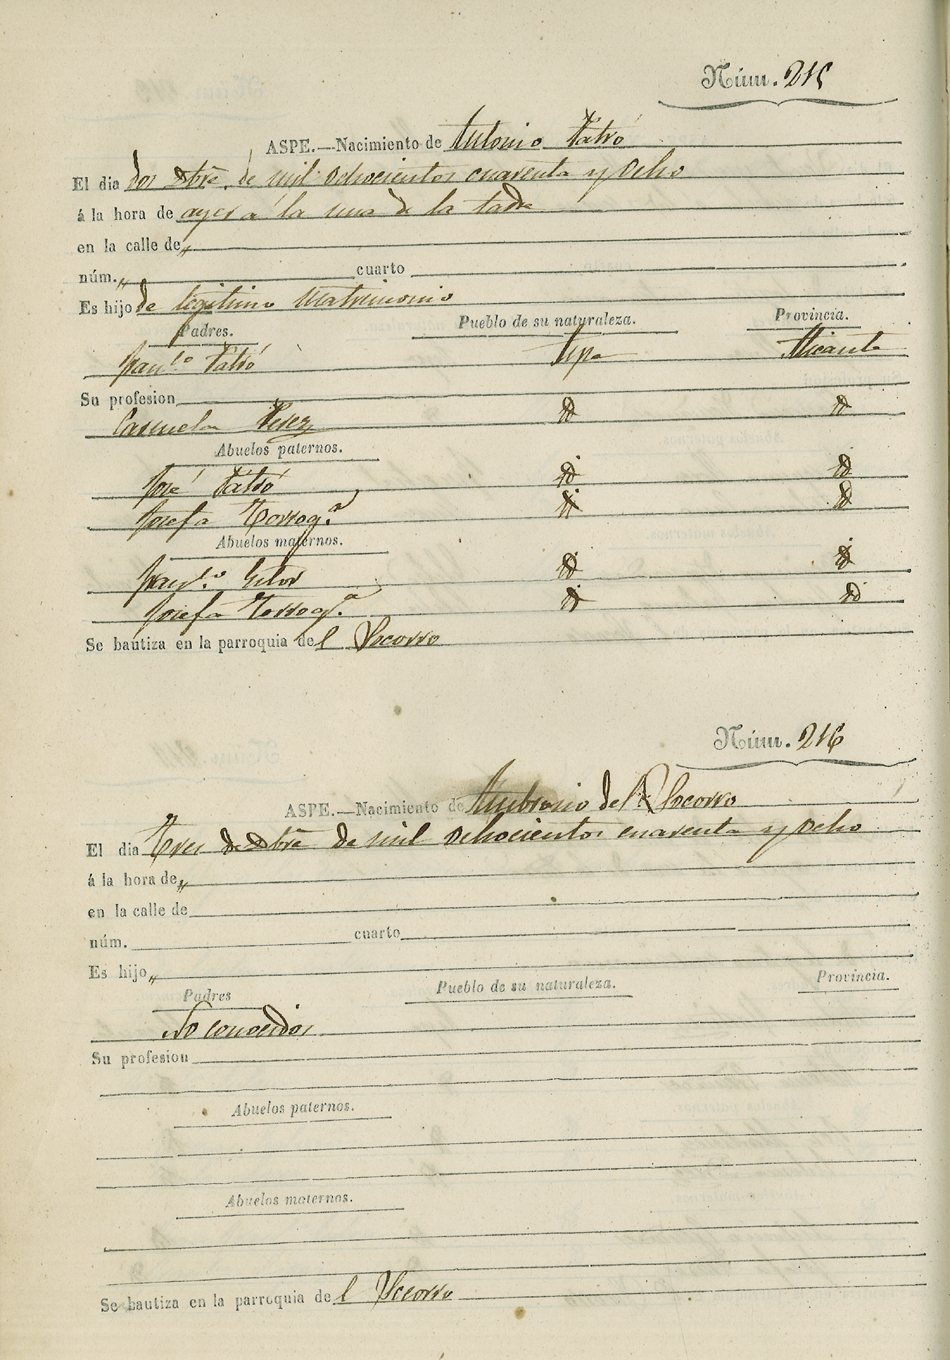 Núm. 215
ASPE.—Nacimiento de Antonio
El dia dos de mil ochocientos cuarenta y Ocho
á la hora de ayer á la una de la tarde
en la calle de „
núm. „ cuarto
Es hijo de legitimo Matrimonio
Padres. Pueblo de su naturaleza. Provincia.
Aspe Alicante
Su profesion
Perez id id
Abuelos paternos.
José id id
Josefa id id
Abuelos maternos.
id id
Josefa id id
Se bautiza en la parroquia del Socorro
Núm. 216
ASPE.—Nacimiento de Ambrosio del Socorro
El dia Tres de mil ochocientos cuarenta y Ocho
á la hora de „
en la calle de
núm. cuarto
Es hijo „
Padres Pueblo de su naturaleza. Provincia.
No conocidos
Su profesion
Abuelos paternos.
Abuelos maternos.
Se bautiza en la parroquia del Socorro